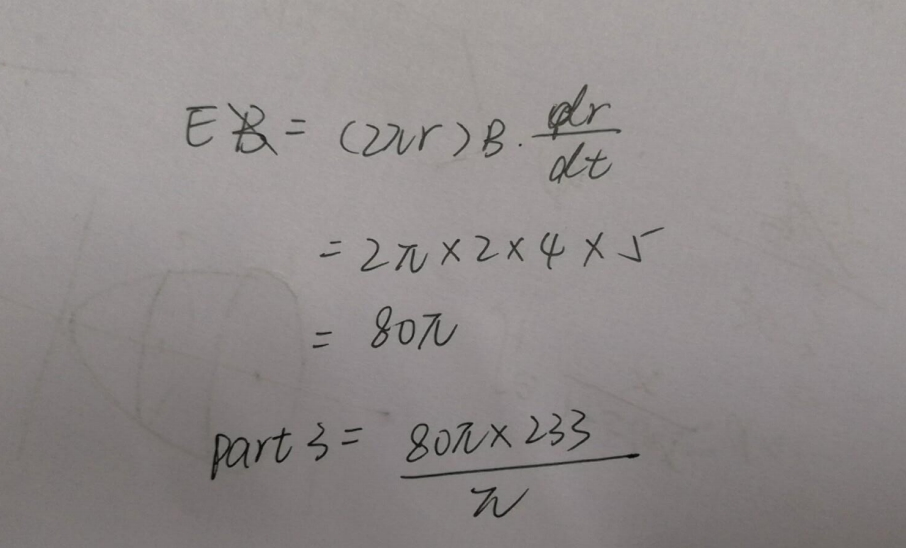 E B = (2πr) B · dr/dt
= 2π × 2 × 4 × 5
= 80π
part 3 = 80π × 233 / π